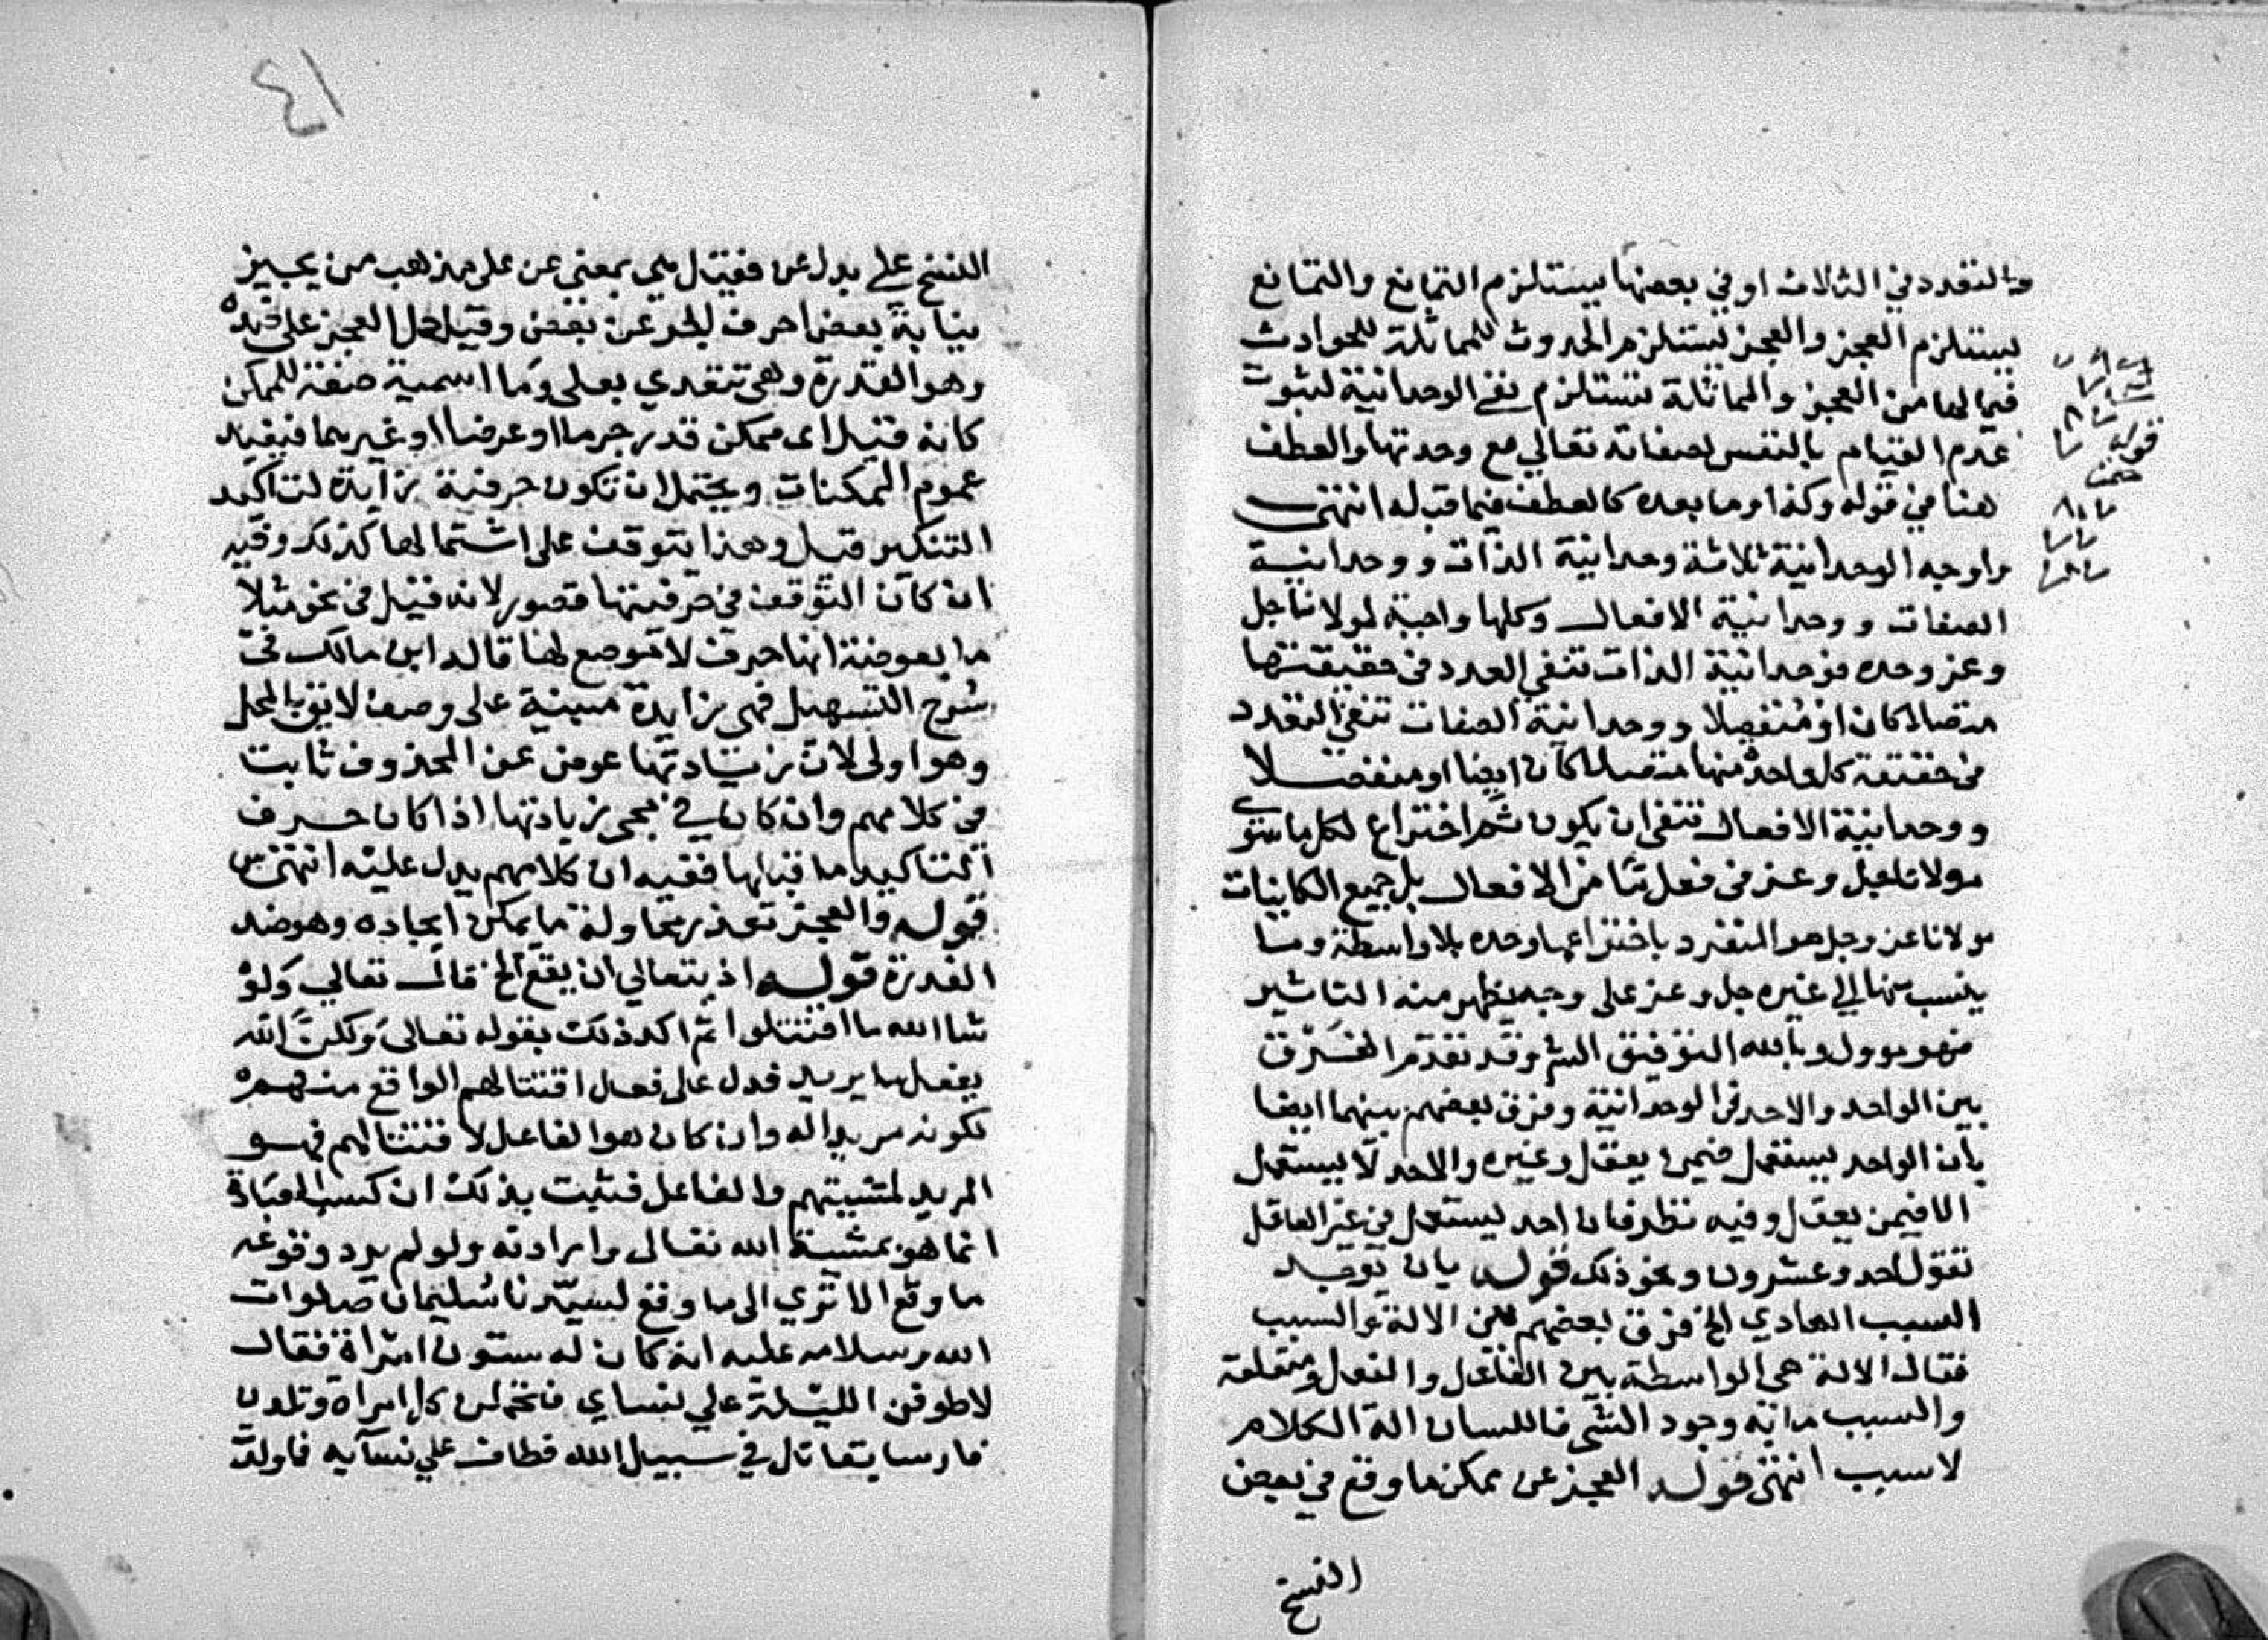 والتعدد في الثلاث او في بعضها يستلزم التمانع والتمانع
يستلزم العجز والعجز يستلزم الحدوث للمماثلة للحوادث
فيما لها من العجز والمماثلة تستلزم نفي الوحدانية لثبوت
عدم القيام بالنفس لصفاته تعالي مع وحدتها والعطف
هنا في قوله وكذا وما بعده كالعطف فيما قبله انتهى
واوجه الوحدانية ثلاثة وحدانية الذات ووحدانية
الصفات ووحدانية الافعال وكلها واجبة لمولانا جل
وعز وحده فوحدانية الذات تنفي العدد في حقيقتها
متصلا كان او منفصلا ووحدانية الصفات تنفي التعدد
في حقيقة كل واحد منها متصلا كان ايضا او منفصلا
ووحدانية الافعال تنفي ان يكون ثم اختراع لكل ما سوي
مولانا جل وعز في فعل ما من الافعال بل جميع الكاينات
مولانا عز وجل هو المنفرد باختراعها وحده بلا واسطة وما
ينسب منها الي غيره جل وعز على وجه يظهر منه التاثير
فهو موول وبالله التوفيق الش وقد تقدم الفرق
بين الواحد والاحد في الوحدانية وفرق بعضهم بينهما ايضا
بان الواحد يستعمل فيمن يعقل وغيره والاحد لا يستعمل
الا فيمن يعقل وفيه نظر فان احد يستعمل في غير العاقل
تقول احد وعشرون ونحو ذلك قوله بان يوجد
السبب العادي الخ فرق بعضهم بين الالة والسبب
فقال الالة هي الواسطة بين الفاعل والمفعول ومنفعله
والسبب ما به وجود الشي فاللسان الة الكلام
لا سبب انتهى قوله العجز عن ممكن ما وقع في بعض
النسخ
٤١
النسخ علي بدل عن فقيل هي بمعنى عن على مذهب من يجيز
نيابة بعض احرف الجر عن بعض وقيل حمل العجز على ضده
وهو القدرة وهي تتعدي بعلى وما اسمية صفة للممكن
كانه قيل اى ممكن قدر جرما او عرضا او غيرهما فيفيد
عموم الممكنات ويحتمل ان تكون حرفية زايدة لتاكيد
التنكير قبل وهذا يتوقف على اشتمالها كذلك وقيد
ان كان التوقف في حرفيتها قصور لانه قيل في نحو مثلا
ما بعوضة انها حرف لا موضع لها قاله ابن مالك في
شرح التسهيل فهي زايدة مبينة على وصف لايق بالمحل
وهو اولى لان زيادتها عوض عن المحذوف ثابت
في كلامهم وان كان في مجي زيادتها اذا كان حرف
التاكيد ما قبلها ففيه ان كلامهم يدل عليه انتهى
قوله والعجز تعذر محاولة ما يمكن ايجاده وهو ضد
القدرة قوله اذ يتعالي ان يقع الخ قال تعالي ولو
شا الله ما اقتتلوا ثم اكد ذلك بقوله تعالى ولكن الله
يفعل ما يريد فدل على فعل اقتتالهم الواقع منهم
لكونه مريدا له وان كان هو الفاعل لاقتتالهم فهو
المريد لمشيتهم والفاعل فثبت بذلك ان كسب العباد
انما هو بمشية الله تعالى وارادته ولو لم يرد وقوعه
ما وقع الا تري الى ما وقع لسيدنا سليمان صلوات
الله وسلامه عليه انه كان له ستون امراة فقال
لاطوفن الليلة علي نساي فتحمل كل امراة وتلدن
فارسا يقاتل في سبيل الله فطاف علي نسآيه فاولدت